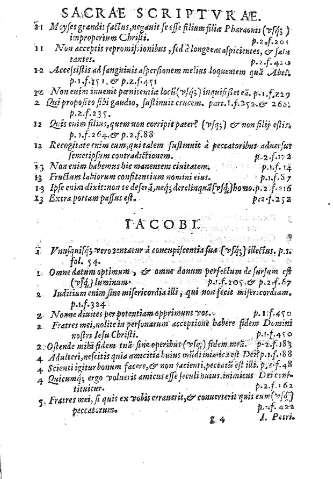 SACRAE SCRIPTVRAE.
11 Moyses grandis factus, negauit se esse filium filiae Pharaonis (vsq;)
improperium Christi. p.2.f.201
11 Non acceptis repromissionibus, sed à longè eas aspicientes, & salu
tantes. p.2.f.420
Accessistis ad sanguinis aspersionem melius loquentem quà Abel.
p.1.f.351. & p.2.f.451
12 Non enim inuenit poenitentia locũ (vsq;) inquisisset eã. p.1.f.229
2 Qui proposito sibi gaudio, sustinuit crucem. part.1.f.252. & 262.
p.2.f.235.
12 Quis enim filius, quem non corripit pater? (vsq;) & non filij estis.
p.1.f.264. & p.2.f.88
12 Recogitate enim eum, qui talem sustinuit à peccatoribus aduersus
semetipsum contradictionem. p.2.f.172
13 Non enim habemus hic manentem ciuitatem. p.2.f.14
13 Fructum labiorum confitentium nomini eius. p.1.f.87
13 Ipse enim dixit: non te deserã, neq; derelinquã (vsq;) homo. p.2.f.216
13 Extra portam passus est. p.2.f.252
IACOBI.
1 Vnusquisq; vero tentatur à concupiscentia sua (vsq;) illectus. p.1.
fol. 54.
1 Omne datum optimum, & omne donum perfectum de sursum est
(vsq;) luminum. p.1.f.205. & p.2.f.67
2 Iuditium enim sine misericordia illi, qui non fecit misericordiam.
p.1.f.324
2 Nonne diuites per potentiam opprimunt vos. p.1.f.450
2 Fratres mei, nolite in personarum acceptione habere fidem Domini
nostri Iesu Christi. p.1.f.450
2 Ostende mihi fidem tuã sine operibus (vsq;) fidem meã. p.2.f.183
4 Adulteri, nescitis quia amicitia huius mũdi inimica est Dei? p.1.f.188
4 Scienti igitur bonum facere, & non facienti, peccatũ est illi. p.2.f.48
4 Quicunq; ergo voluerit amicus esse seculi huius, inimicus Dei consti
tuitur. p.2.f.162
5 Fratres mei, si quis ex vobis errauerit, & conuerterit quis eum (vsq;)
peccatorum. p.2.f.422
g 4 I. Petri.